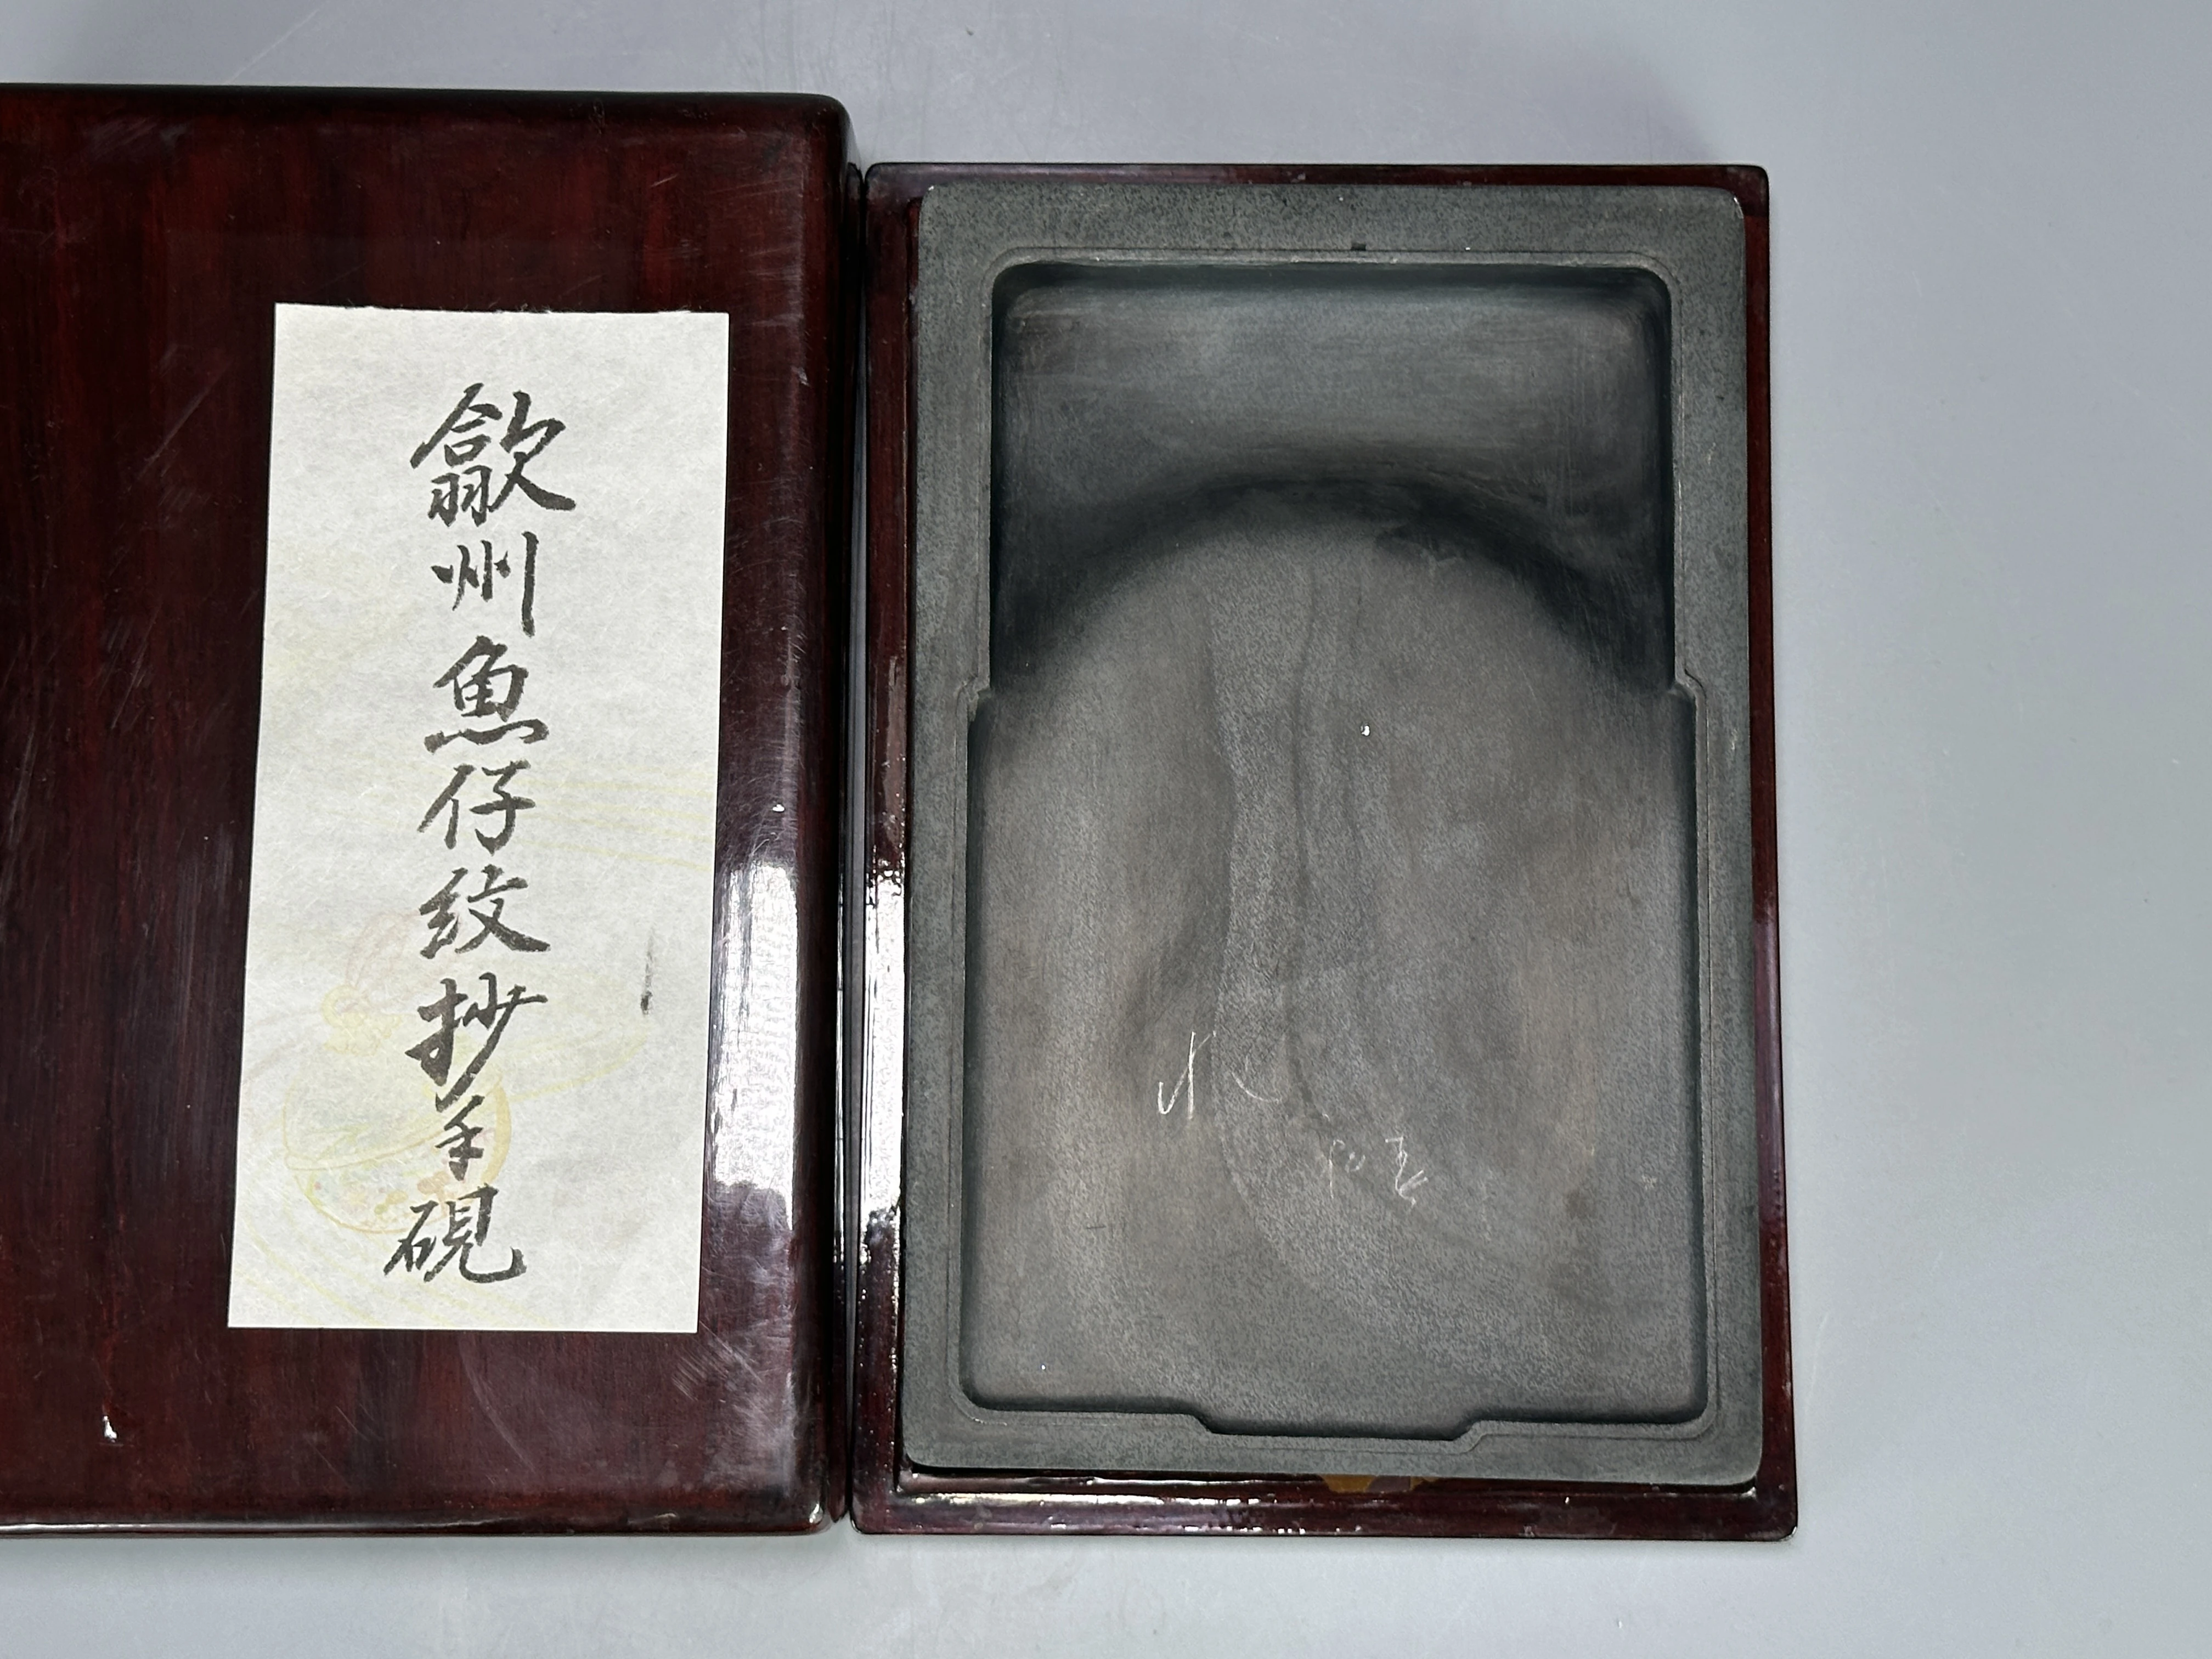 歙州魚仔紋抄手硯